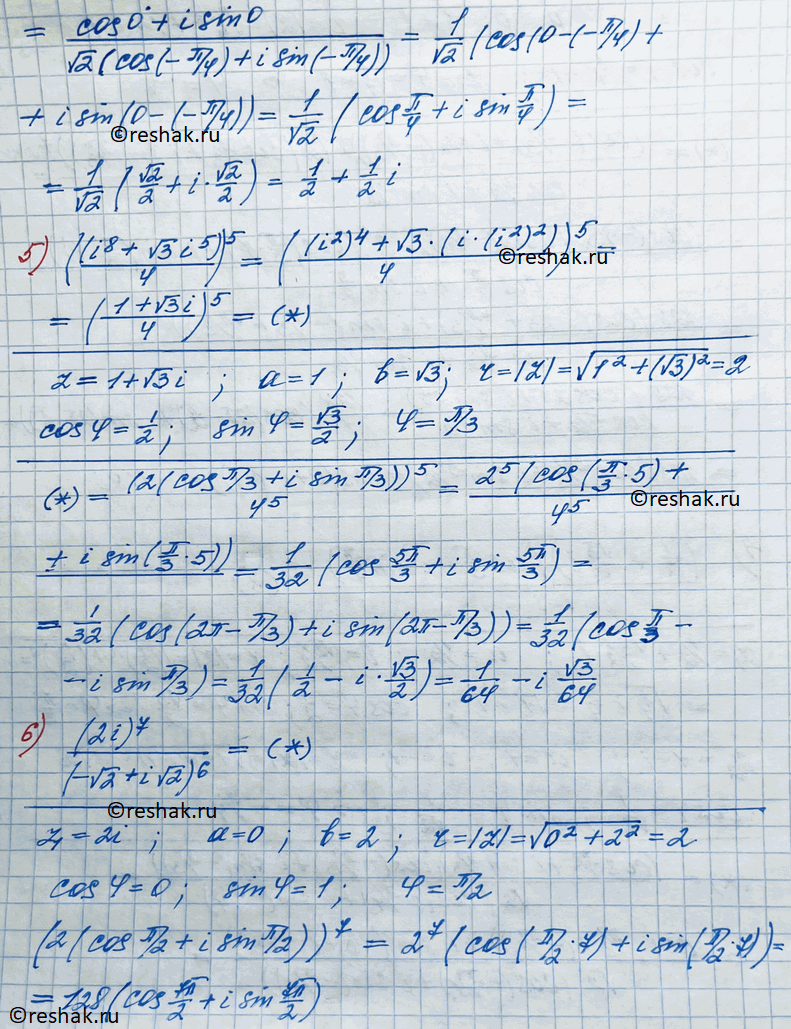 = (cos 0 + i sin 0)/(√2 (cos(-π/4) + i sin(-π/4))) = 1/√2 (cos(0-(-π/4) +
+ i sin(0-(-π/4)) = 1/√2 (cos π/4 + i sin π/4) =
©reshak.ru
= 1/√2 (√2/2 + i·√2/2) = 1/2 + 1/2 i
5) ((i⁸ + √3 i⁵)/4)⁵ = (((i²)⁴ + √3·(i·(i²)²))/4)⁵ =
©reshak.ru
= ((1+√3i)/4)⁵ = (*)
z = 1+√3i ; a=1 ; b=√3; r=|z|=√(1²+(√3)²)=2
cos φ = 1/2; sin φ = √3/2; φ = π/3
(*) = (2(cos π/3 + i sin π/3))⁵/4⁵ = 2⁵(cos(π/3·5) +/4⁵
©reshak.ru
+ i sin(π/3·5)) = 1/32 (cos 5π/3 + i sin 5π/3) =
= 1/32 (cos(2π-π/3) + i sin(2π-π/3)) = 1/32 (cos π/3 -
- i sin π/3) = 1/32 (1/2 - i·√3/2) = 1/64 - i √3/64
6) (2i)⁷/(-√2+i√2)⁶ = (*)
©reshak.ru
z₁ = 2i ; a=0 ; b=2 ; r=|z|=√(0²+2²)=2
cos φ=0; sin φ=1; φ=π/2
(2(cos π/2 + i sin π/2))⁷ = 2⁷(cos(π/2·7) + i sin(π/2·7)) =
= 128(cos 7π/2 + i sin 7π/2)
©reshak.ru